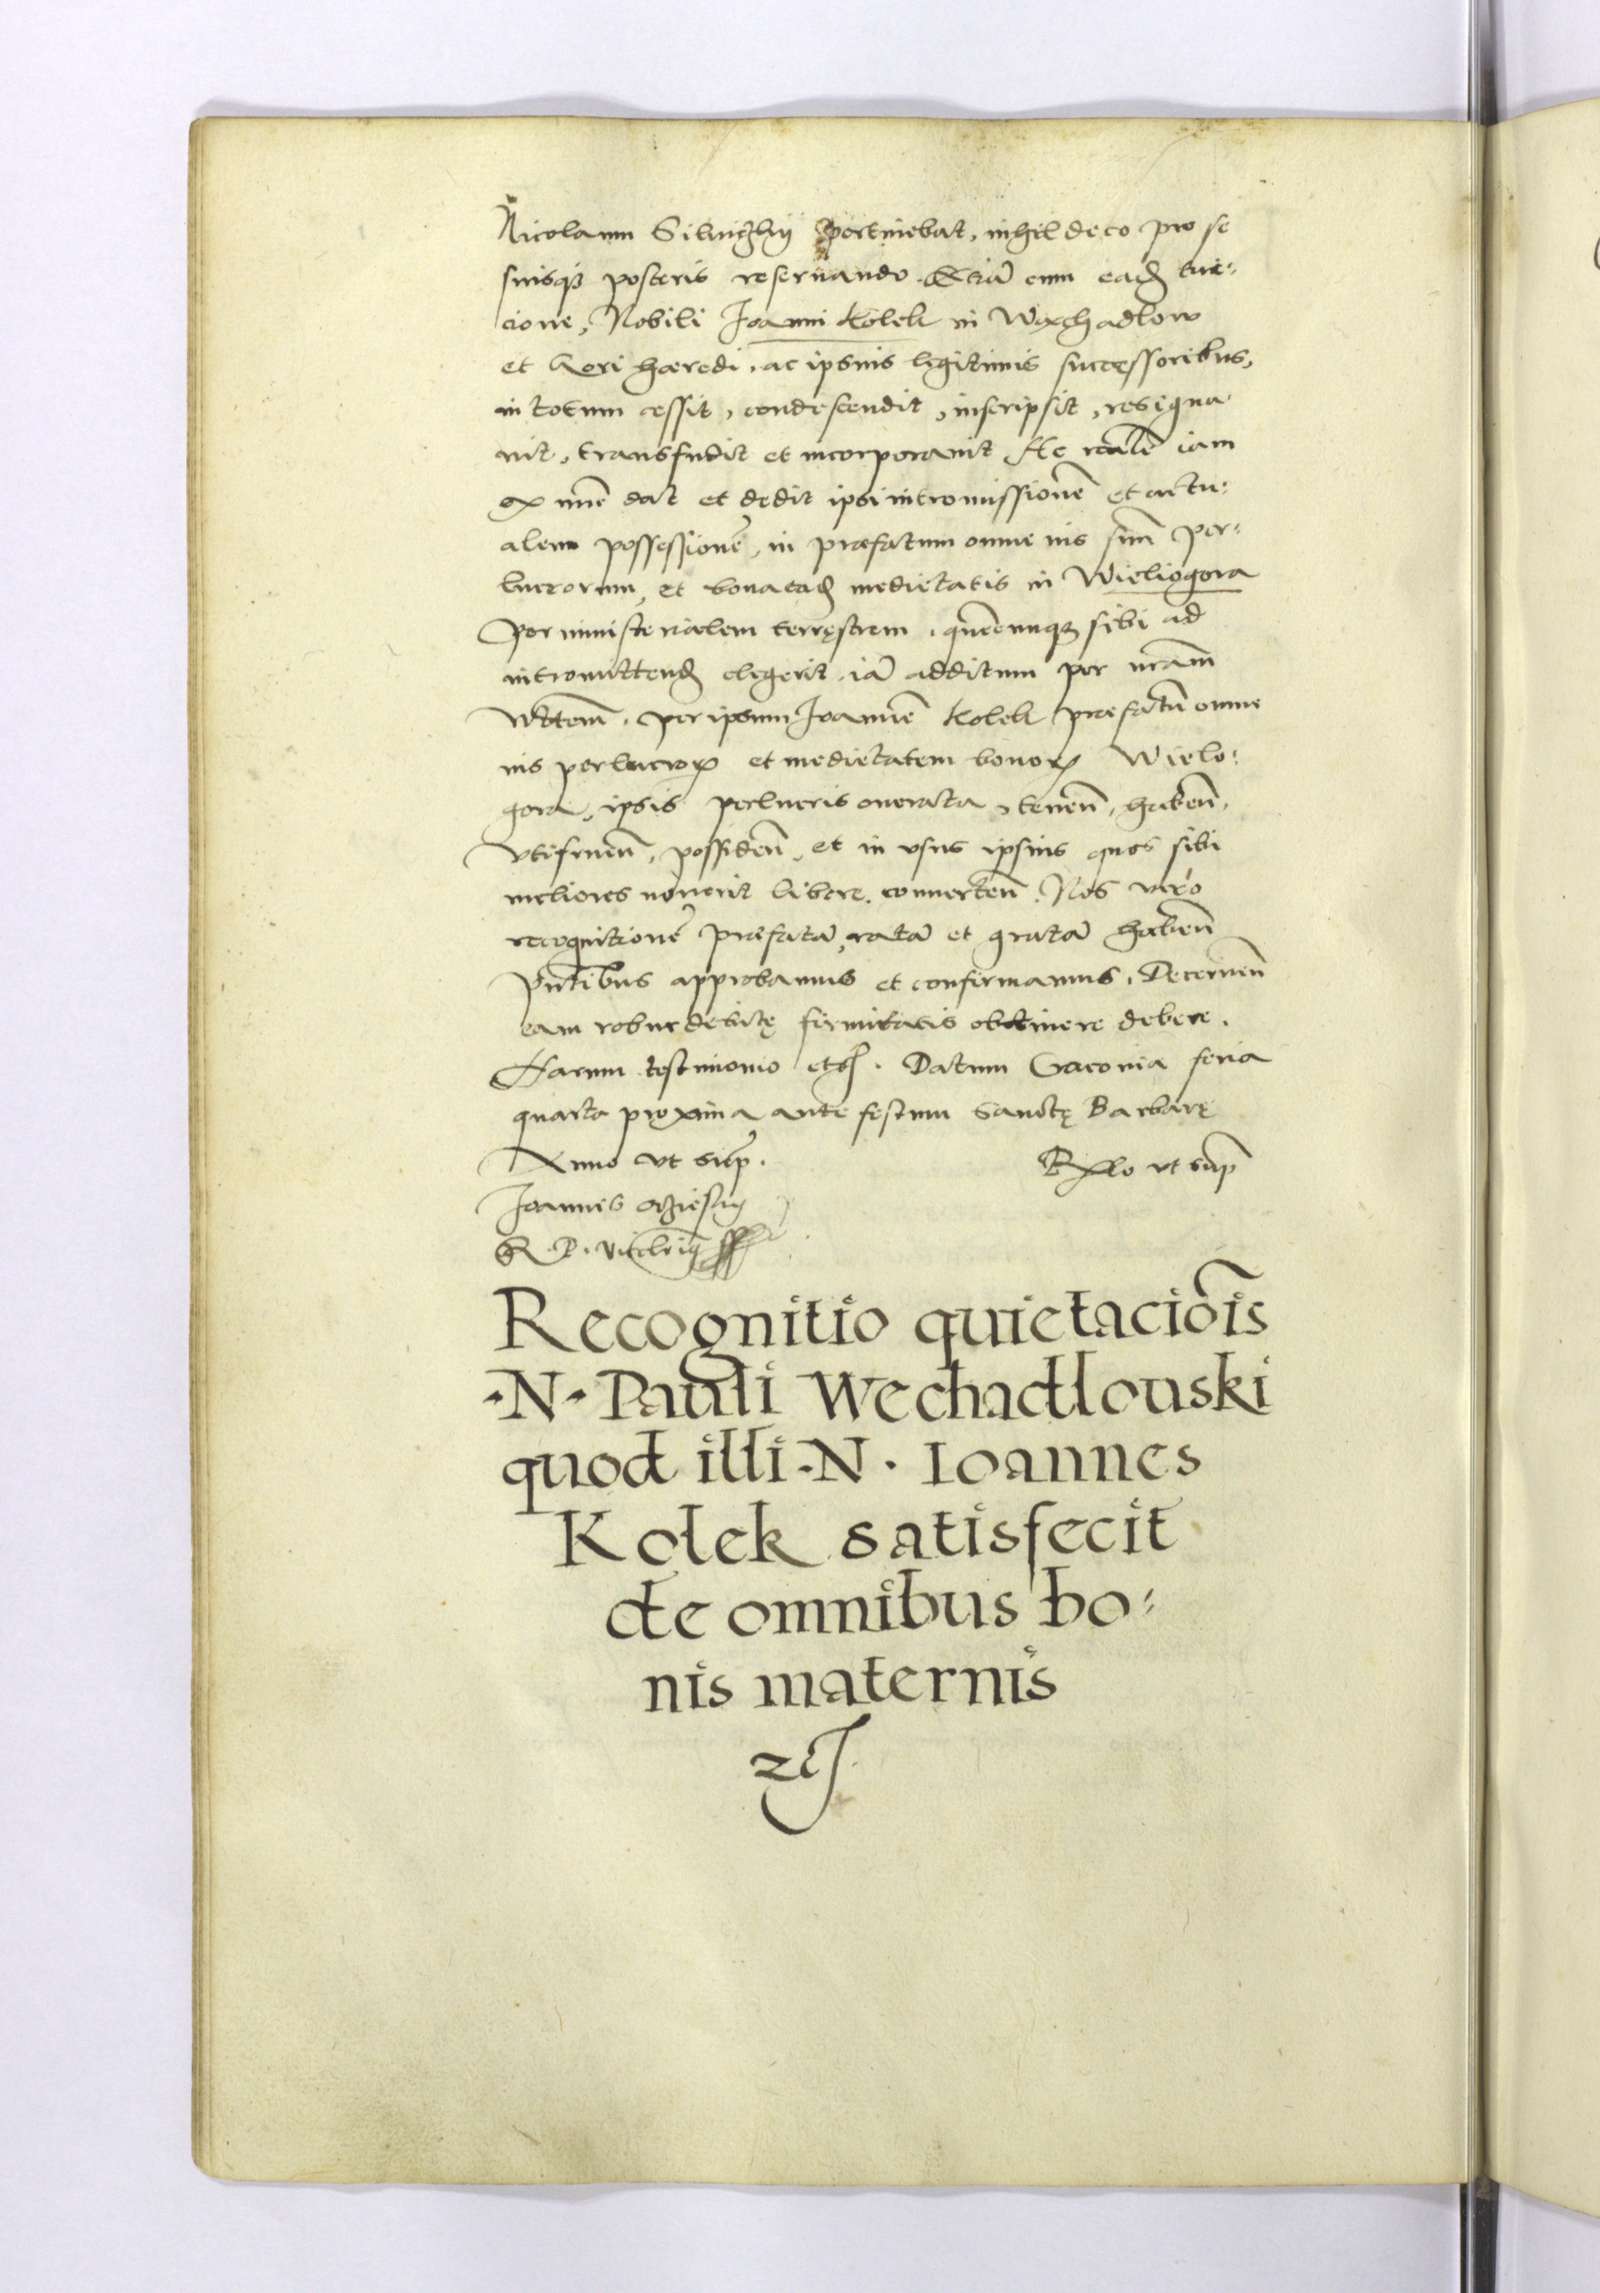 Nicolaum Silnichij pertinebat, nihil de eo pro se
suisq3 posteris reseruando. Etiā cum eadē tui-
cione, Nobili Joanni Kolek in Wechadlow
et Keri hæredi, ac ipsius legitimis successoribus,
in totum cessit, condescendit, inscripsit, resigna-
uit, transfudit et incorporauit. Ac realē iam
ex nūc dat et dedit ipsi intromissionē et actu-
alem possessionē, in præfatum omne ius suū per-
lucrorum, et bona eadē medietatis in Wieliogora
per ministerialem terręstrem, quēcunq3 sibi ad
intromittendū elegerit, iā additum per nrām
Mtem, per ipsum Joannē Kolek præfatū omne
ius perlucroꝝ et medietatem bonoꝝ Wielo-
gora, ipsis perlucris onerata, tenen̄, haben̄,
vtifruen̄, possiden̄, et in vsus ipsius quos sibi
meliores nouerit libere conuerten̄. Nos vero
recognitionē præfatā, ratā et gratā haben̄
pn̄tibus approbamus et confirmamus, Decernen̄
eam robur debitę firmitatis obtinere debere.
Harum testimonio etc̄. Datum Cracouia feria
quarta proxima ante festum Sanctę Barbarę
Anno vt sup̄. Rlo vt sup̄
Joannes Ocziesky
R. P. Vicecanc̄ ss
Recognitio quietaciōis
·N· Pauli Wechadlouski
quod illi ·N· Ioannes
Kolek satisfecit
de omnibus bo-
nis maternis
zc̄